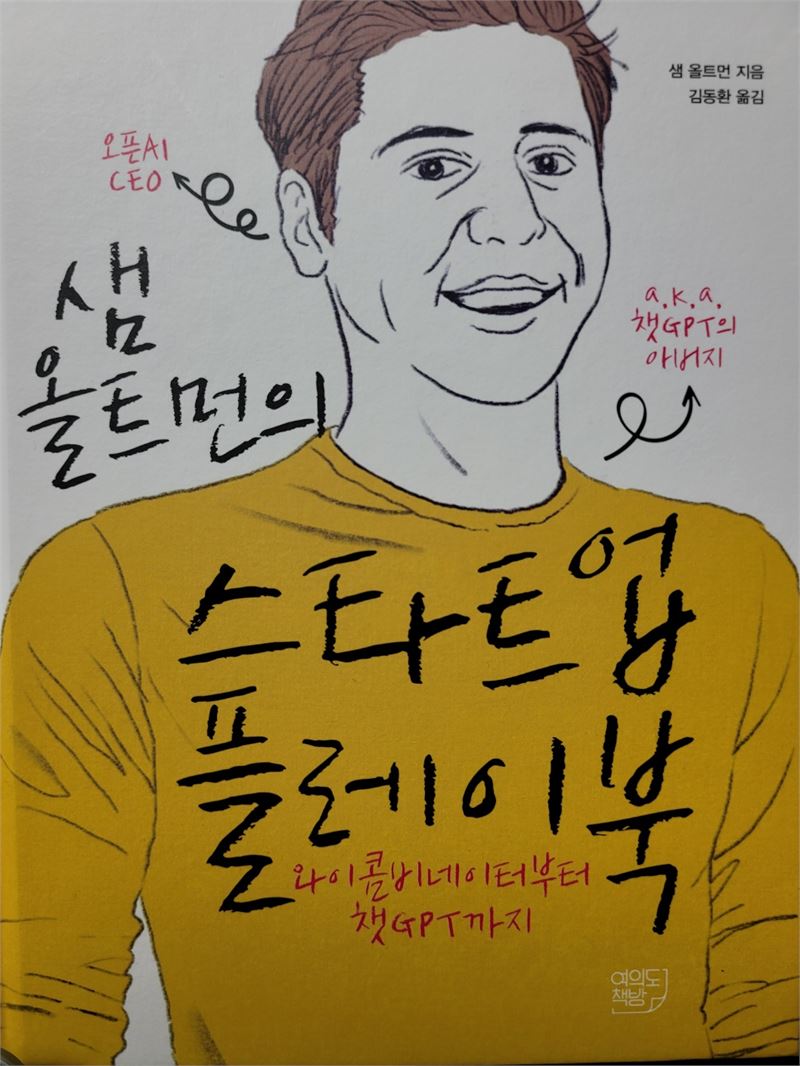 샘 올트먼 지음
김동환 옮김
오픈AI
CEO
샘
올트먼의
a.k.a.
챗GPT의
아버지
스타트업
플레이북
와이콤비네이터부터
챗GPT까지
여의도
책방